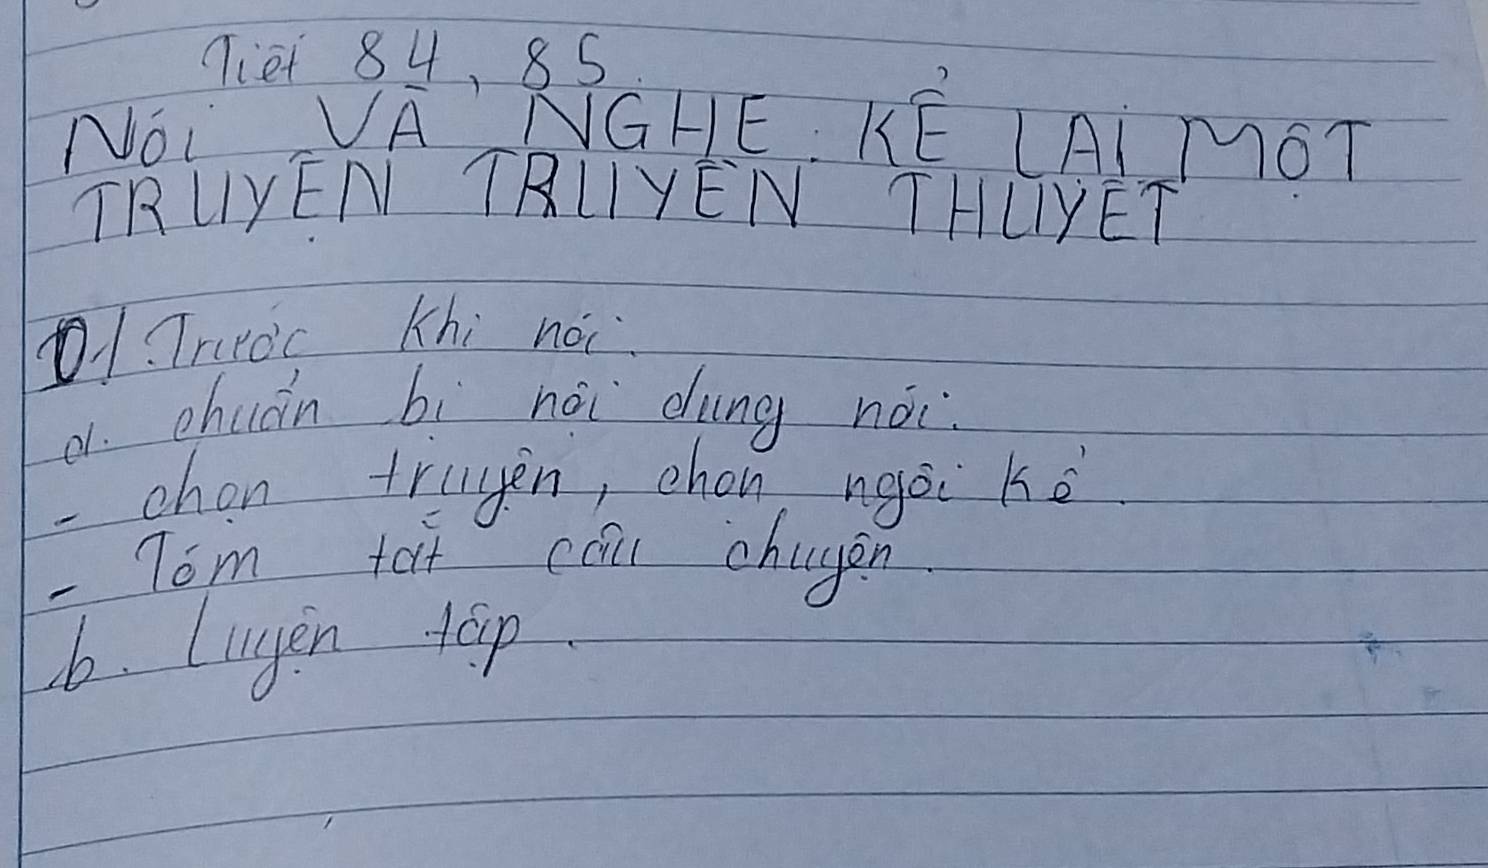 Tiết 84, 85.
NÓI VÀ NGHE: KỂ LẠI MỘT
TRUYỆN TRUYỀN THUYẾT
01. Trước khi nói.
a. chuẩn bị nội dung nói.
- chọn truyện, chọn ngôi kể.
- Tóm tắt câu chuyện.
b. Luyện tập.